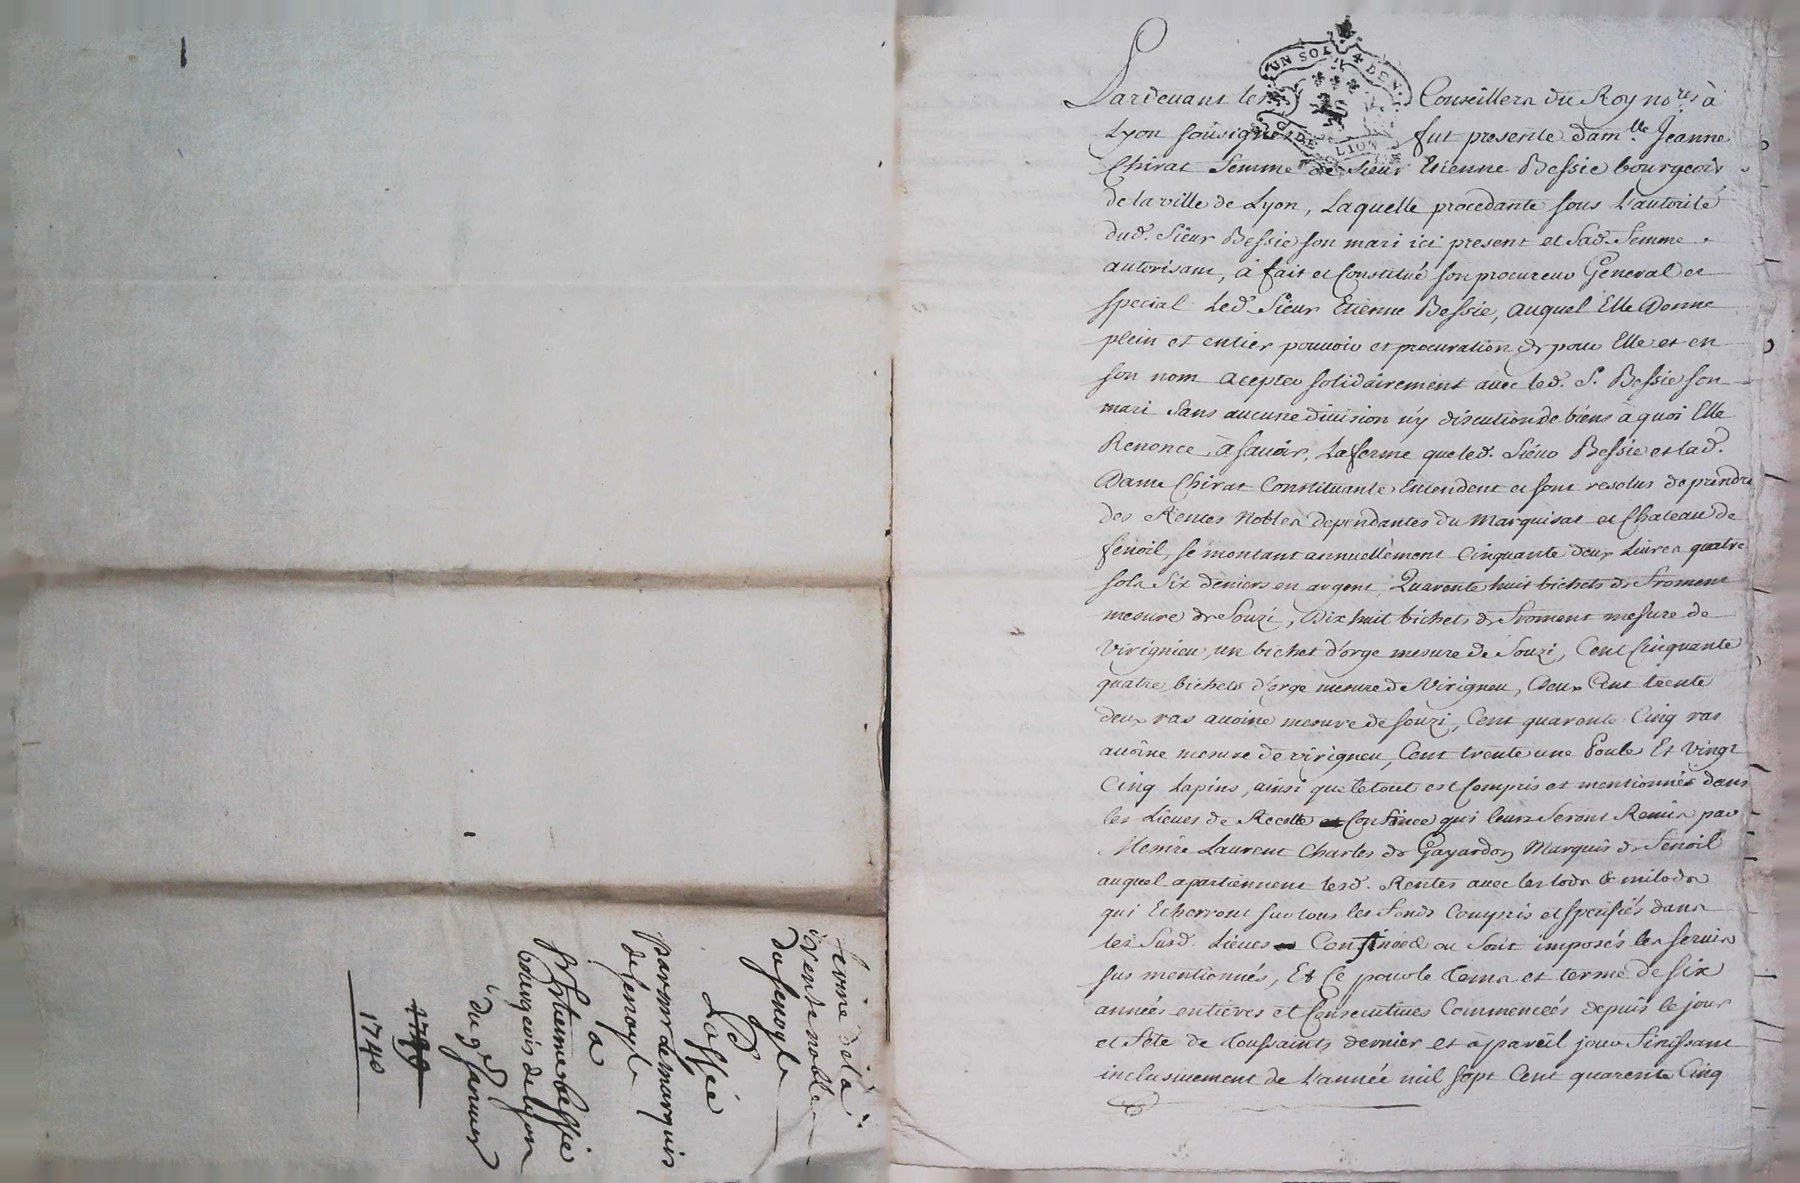 ferme de la
rente noble
de fenoyle
Passée
Par mr. le marquis
de fenoyle
à
Sr Estienne bessie
bourgeois de lyon
du 9e Janvier
1739
1740
UN SOL
DEN.
G. DE LION
Pardevant les Conseillers du Roy nores à
Lyon sousignés fut presente damlle Jeanne
Chirat femme de sieur Etienne Bessie bourgeois
de la ville de Lyon, Laquelle procedante sous L'autorité
dud. sieur Bessie son mari ici present et sad. femme
autorisant, à fait et Constitué son procureur General et
special Led. sieur Etienne Bessie, auquel Elle Donne
plein et entier pouvoir et procuration de pour Elle et en
son nom acepter solidairement avec led. S. Bessie son
mari sans aucune division n'y discution de biens à quoi Elle
Renonce, à savoir, La ferme que led. Sieur Bessie et lad.
Dame Chirat Constituante Entendent et sont resolus de prendre
des Rentes Nobles dependantes du Marquisat et Chateau de
fenoil, se montant annuellement Cinquante deux Livres quatre
sols six deniers en argent, Quarente huit bichets de froment
mesure de Souzi, Dix huit bichets de froment mesure de
Virignieu, un bichet d'orge mesure de Souzi, Cent Cinquante
quatre bichets d'orge mesure de Virigneu, Deux Cent trente
deux ras avoine mesure de souzi, Cent quarente Cinq ras
avoine mesure de virigneu, Cent trente une Poule Et vingt
Cinq Lapins, ainsi que le tout est Compris et mentionnés dans
les Lieves de Recette et Confinée qui leurs seront Remis par
Messire Laurent Charles de Gayardon Marquis de fenoil
auquel apartiennent lesd. Rentes avec les lods & milods
qui Echerront sur tous les fonds Compris et spesifiés dans
les susd. Lieves Confinées ou sont imposés les servis
sus mentionnés, Et Ce pour le tems et terme de six
années entieres et Consecutives Commencées depuis le jour
et fête de Toussaints dernier et à pareil jour finissant
inclusivement de L'année mil sept Cent quarente Cinq